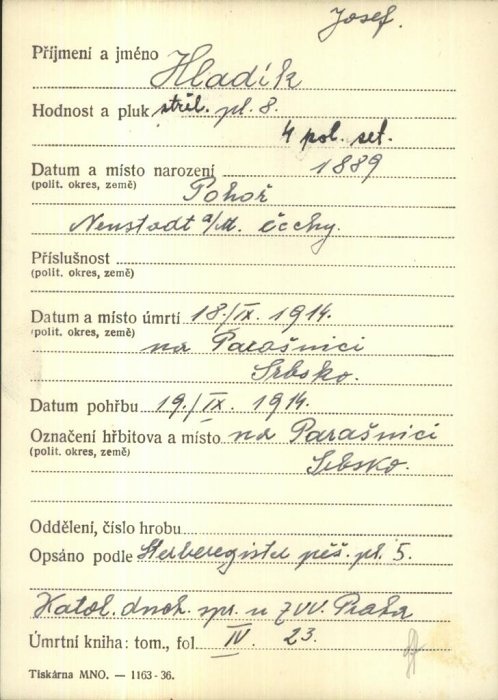 Josef.
Příjmení a jméno Hladík
Hodnost a pluk střel. pl. 8.
4 pol. set.
Datum a místo narození 1889
(polit. okres, země) Pohoř
Neustadt a/M. čechy.
Příslušnost
(polit. okres, země)
Datum a místo úmrtí 18./IX. 1914.
(polit. okres, země) na Parašnici
Srbsko.
Datum pohřbu 19./IX. 1914.
Označení hřbitova a místo na Parašnici
(polit. okres, země) Srbsko.
Oddělení, číslo hrobu
Opsáno podle Sterberegistel pěš. pl. 5.
Katol. duch. spr. u ZVV. Praha
Úmrtní kniha: tom., fol. IV. 23.
Tiskárna MNO. — 1163-36.